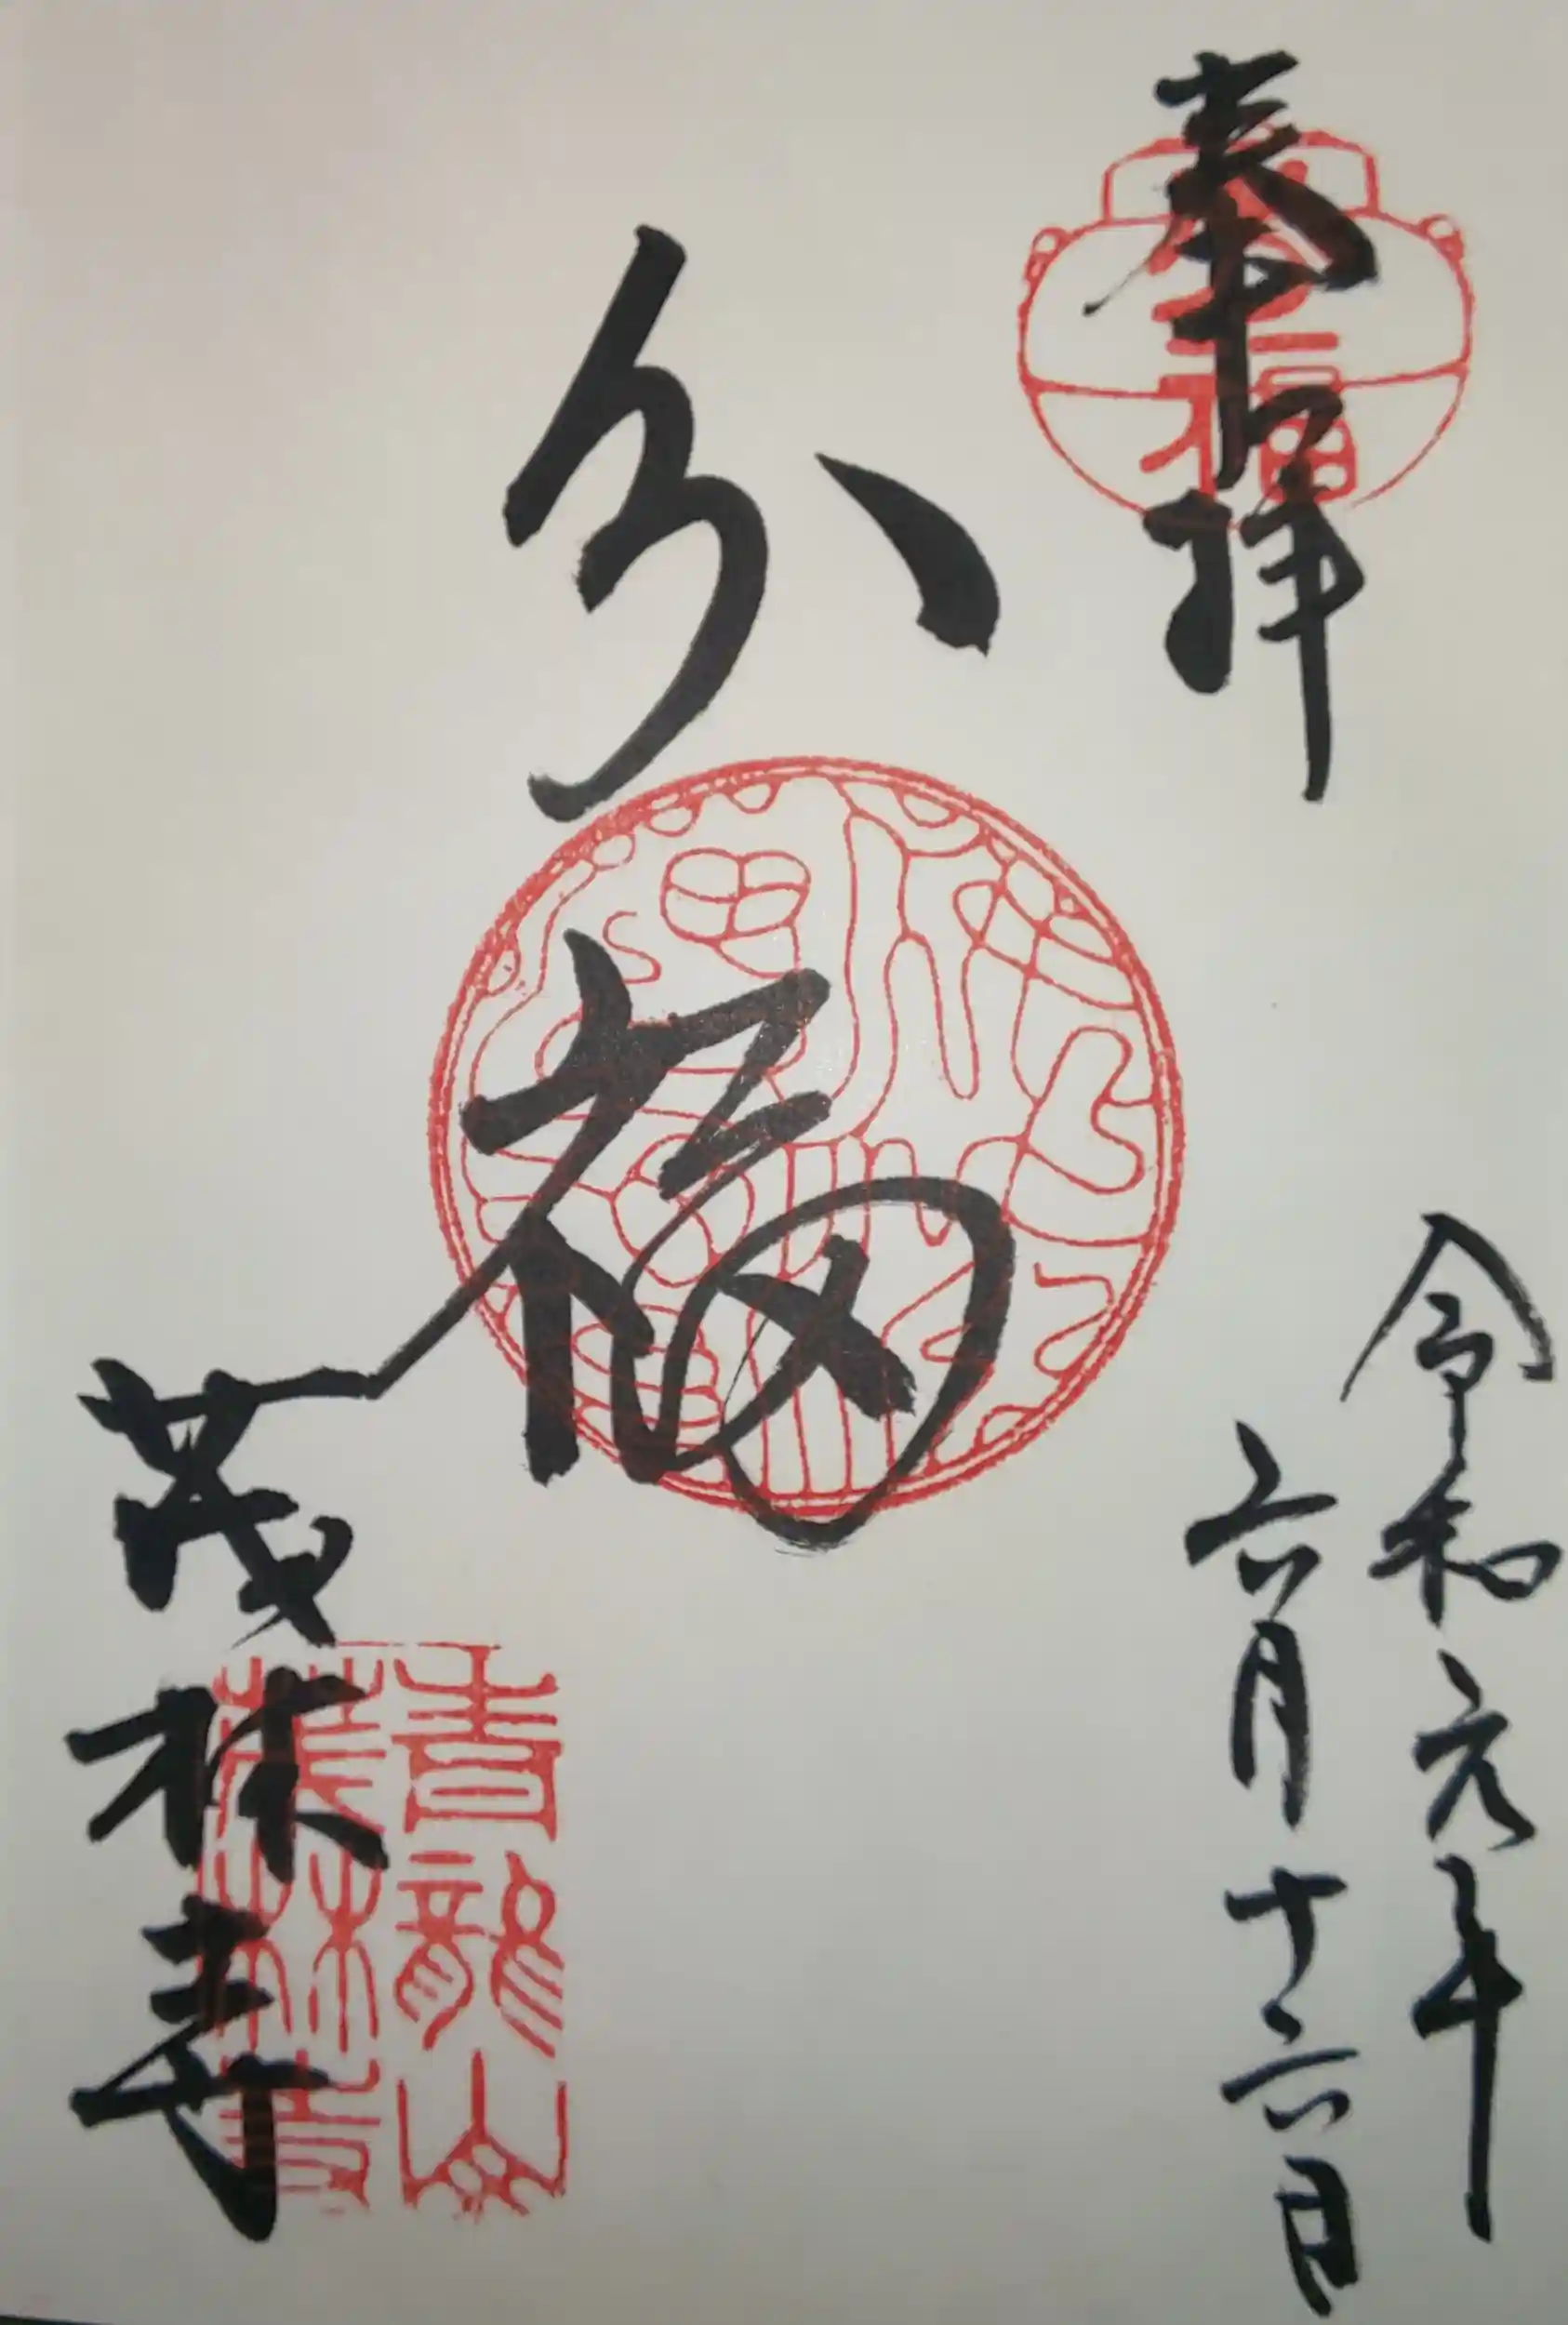 奉拝
令和元年
六月十六日
分福
茂林寺
分福
青龍山
茂林寺